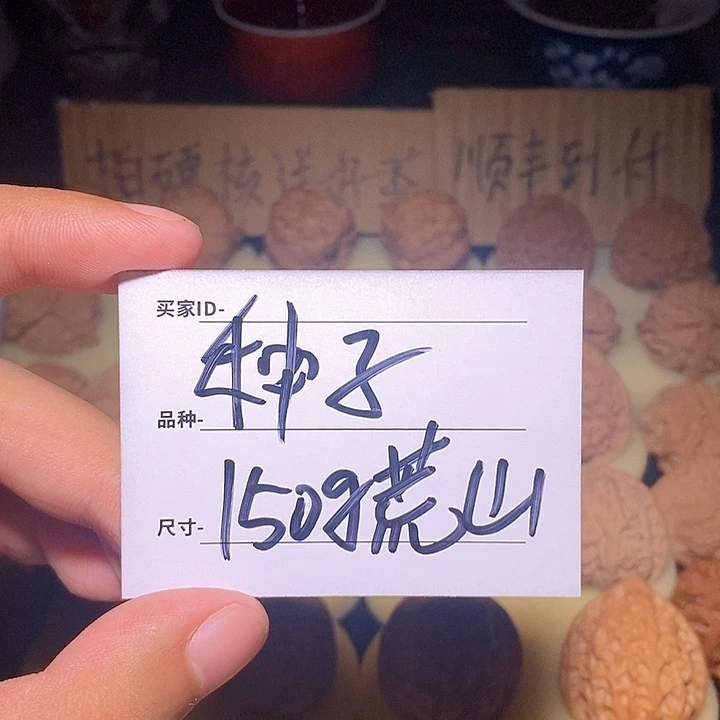 拍硬核送好茶
顺丰到付
买家ID-
种子
品种-
150g荒山
尺寸-